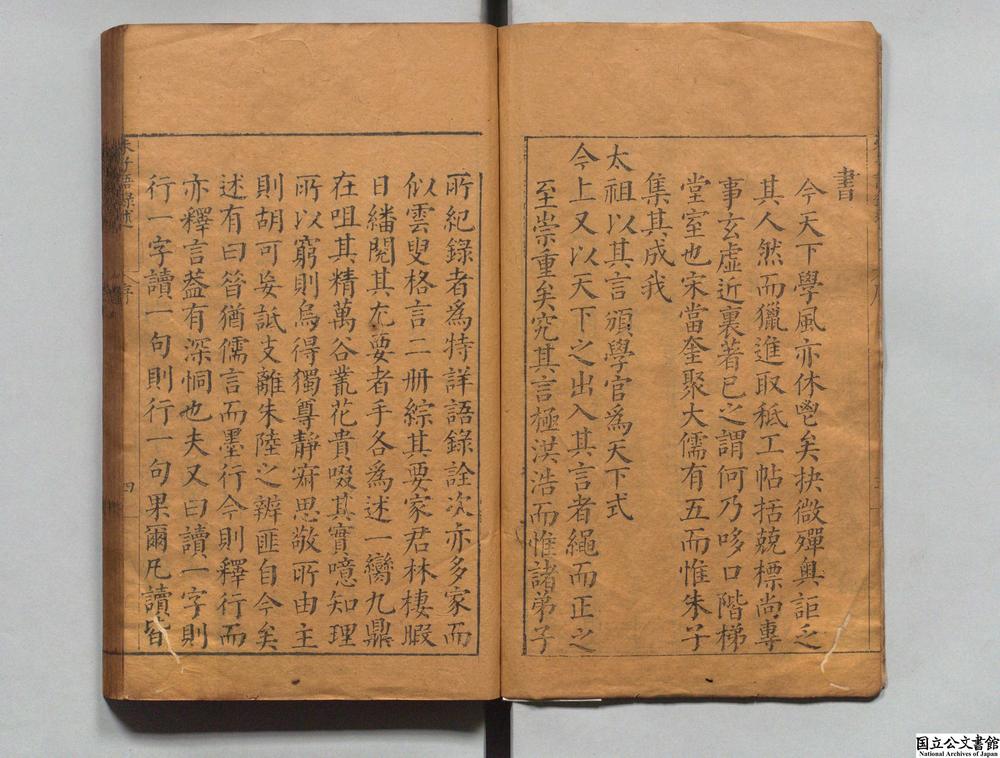 書
今天下學風亦休鬯矣抉微殫奧詎乏
其人然而獵進取秪工帖括兢標尚專
事玄虛近裏著已之謂何乃哆口階梯
堂室也宋當奎聚大儒有五而惟朱子
集其成我
太祖以其言頒學官為天下式
今上又以天下之出入其言者繩而正之
至崇重矣究其言極洪浩而惟諸弟子
所紀錄者為特詳語錄詮次亦多家而
似雲叟格言二册綜其要家君林棲暇
日繙閱其尤要者手各為述一臠九鼎
在咀其精萬谷叢花貴啜其實噫知理
所以窮則烏得獨尊靜窮思敬所由主
則胡可妄詆支離朱陸之辨匪自今矣
述有曰昝猶儒言而墨行今則釋行而
亦釋言葢有深恫也夫又曰讀一字則
行一字讀一句則行一句果爾凡讀皆
朱子語錄述
序
四
国立公文書館
National Archives of Japan